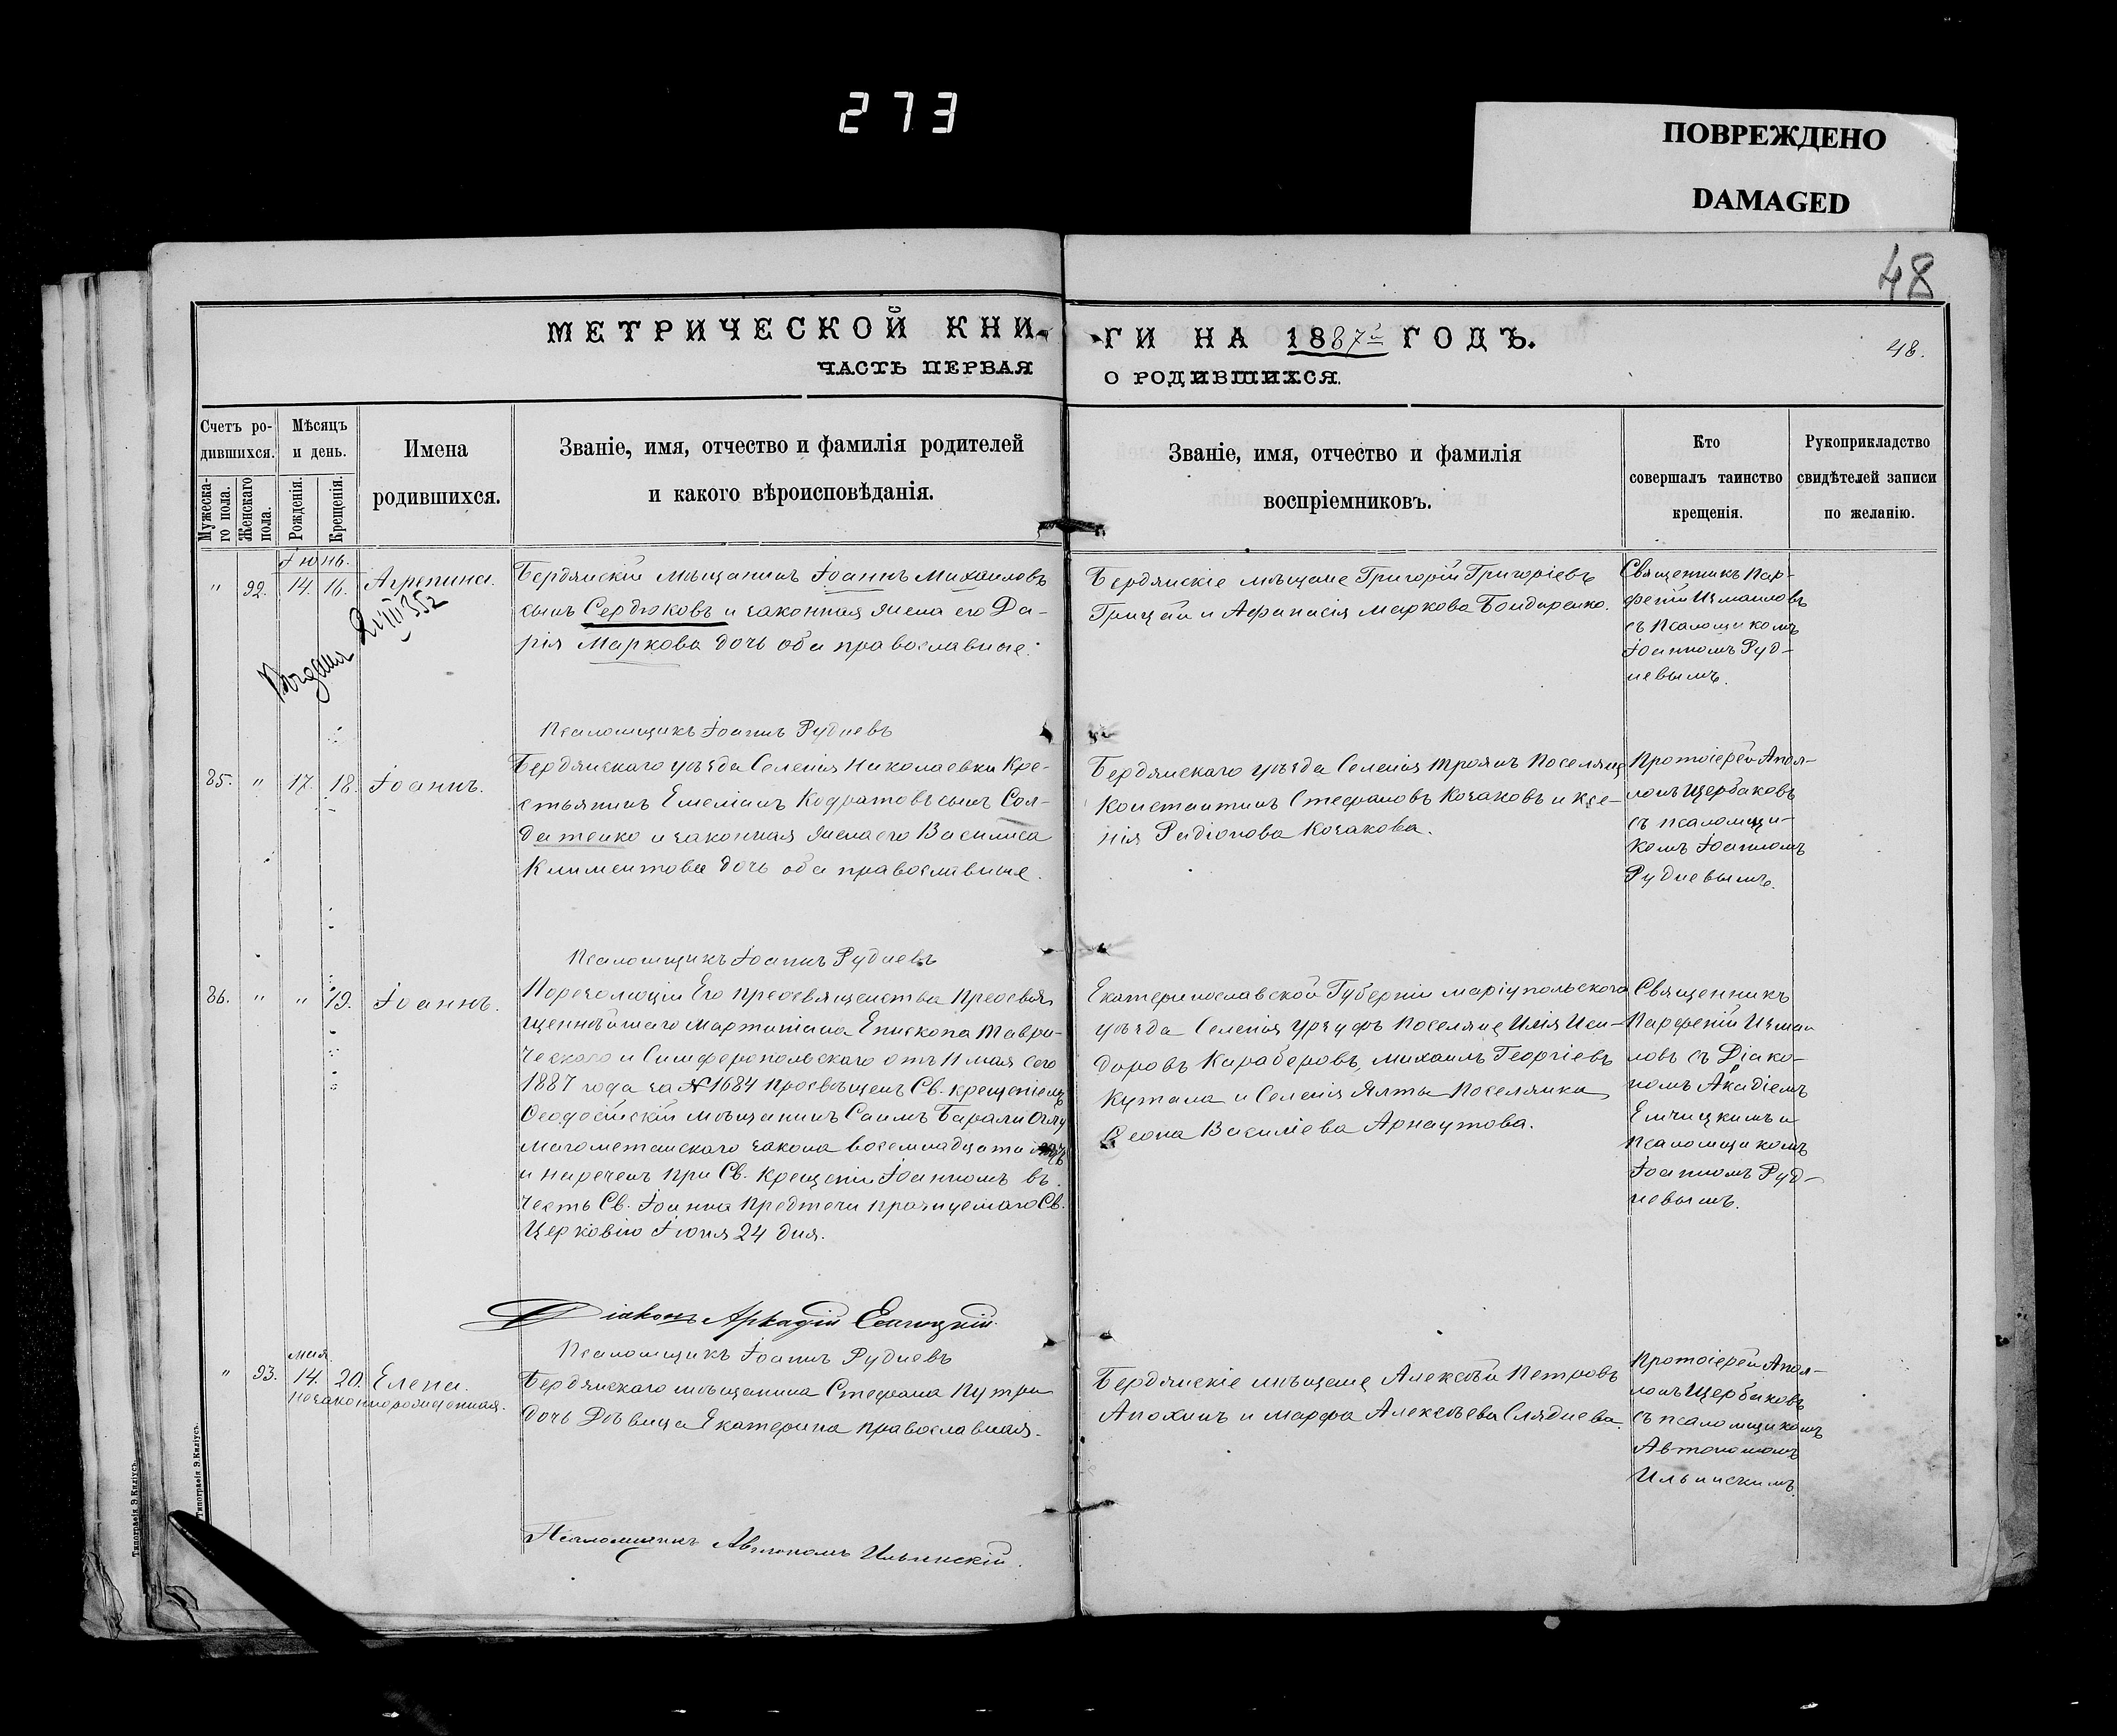 273
ПОВРЕЖДЕНО
DAMAGED
48
МЕТРИЧЕСКОЙ КНИ-
ГИ НА 1887й ГОДЪ.
48.
ЧАСТЬ ПЕРВАЯ
О РОДИВШИХСЯ.
Счетъ ро-
дившихся.
Мужеска-
го пола.
Женскаго
пола.
Мѣсяцъ
и день.
Рожденія.
Крещенія.
Имена
родившихся.
Званіе, имя, отчество и фамилія родителей
и какого вѣроисповѣданія.
Званіе, имя, отчество и фамилія
воспріемниковъ.
Кто
совершалъ таинство
крещенія.
Рукоприкладство
свидѣтелей записи
по желанію.
Іюнь.
" 92. 14. 16. Агрепина.
Бердянскій мѣщанинъ Іоаннъ Михаиловъ
сынъ Сердюковъ и законная жена его Да-
рія Маркова дочь оба православные.
Бердянскіе мѣщане Григорій Григоріевъ
Грицай и Афанасія Маркова Бондаренко.
Священникъ Пар-
феній Измаиловъ
съ псаломщикомъ
Іоанномъ Руд-
невымъ.
Псаломщикъ Іоаннъ Рудневъ
85. " 17. 18. Іоаннъ.
Бердянскаго уѣзда Селенія Николаевки Кре-
стьянинъ Емеліанъ Кодратовъ сынъ Сол-
датенко и законная жена его Василиса
Климентова дочь оба православные.
Бердянскаго уѣзда Селенія Троянъ Поселяне
Константинъ Стефановъ Козаковъ и Ксе-
нія Радіонова Козакова.
Протоіерей Апол-
лонъ Щербаковъ
съ псаломщи-
комъ Іоанномъ
Рудневымъ.
Псаломщикъ Іоаннъ Рудневъ
86. " " 19. Іоаннъ.
По резолюціи Его Преосвященства Преосвя-
щеннѣйшаго Мартиніана Епископа Таври-
ческаго и Симферопольскаго отъ 11 мая сего
1887 года за № 1684 просвѣщенъ Св. крещеніемъ
Ѳеодосійскій мѣщанинъ Саимъ Барали Оглу
магометанскаго закона восемнадцати лѣтъ
и нареченъ при Св. Крещеніи Іоанномъ въ
честь Св. Іоанна Предтечи празнуемаго Св.
Церковію Іюня 24 дня.
Екатеринославской Губерніи Маріупольскаго
уѣзда Селенія Урзуфъ Поселяне Илія Иси-
доровъ Караберовъ, Михаилъ Георгіевъ
Кутана и Селенія Ялты Поселянка
Ѳеона Василіева Арнаутова.
Священникъ
Парфеній Измаи
ловъ съ Діако-
номъ Аркадіемъ
псаломщикомъ
Іоанномъ Руд-
невымъ.
Діаконъ Аркадій
Псаломщикъ Іоаннъ Рудневъ
мая
" 93. 14. 20. Елена.
незаконнорожденная.
Бердянскаго мѣщанина Стефана Путри
дочь Дѣвица Екатерина православная.
Бердянскіе мѣщане Алексѣй Петровъ
Апохинъ и Марфа Алексѣева Сляднева.
Протоіерей Апол-
лонъ Щербаковъ
съ псаломщикомъ
Автономомъ
Ильинскимъ.
Псаломщикъ Автономъ Ильинскій.
Типографія Э.Киліусъ.
Типографія Э.Киліусъ.